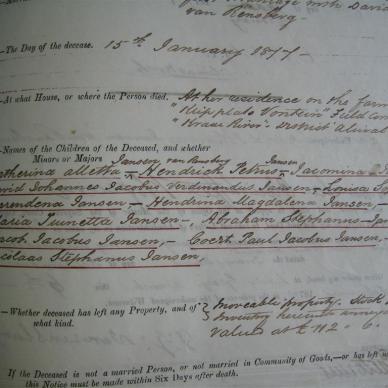 marriage with David
van Rensberg -
-The Day of the decease. 15th January 1877-
-At what House, or where the Person died. At her residence on the farm
"Klipplats Fontein" Field Cor
"Kraai River" District Aliwal
-Names of the Children of the Deceased, and whether
Minors or Majors Jansen van Rensberg Jansen
Catherina alletta - Hendrick Petrus - Jacomina J
David Johannes Jacobus Ferdinandus Jansen - Louisa
Jansen - Hendrina Magdalena Jansen,
Maria Jansen - Abraham Stephanus Ja
Jacob Jacobus Jansen, - Coert Paul Jacobus Jansen,
Nicolaas Stephanus Jansen,
-Whether deceased has left any Property, and of { Moveable property. Stock
what kind. Inventory herewith annexed
value at £112 " 6.
If the Deceased is not a married Person, or not married in Community of Goods,-or has left
this Notice must be made within Six Days after death.